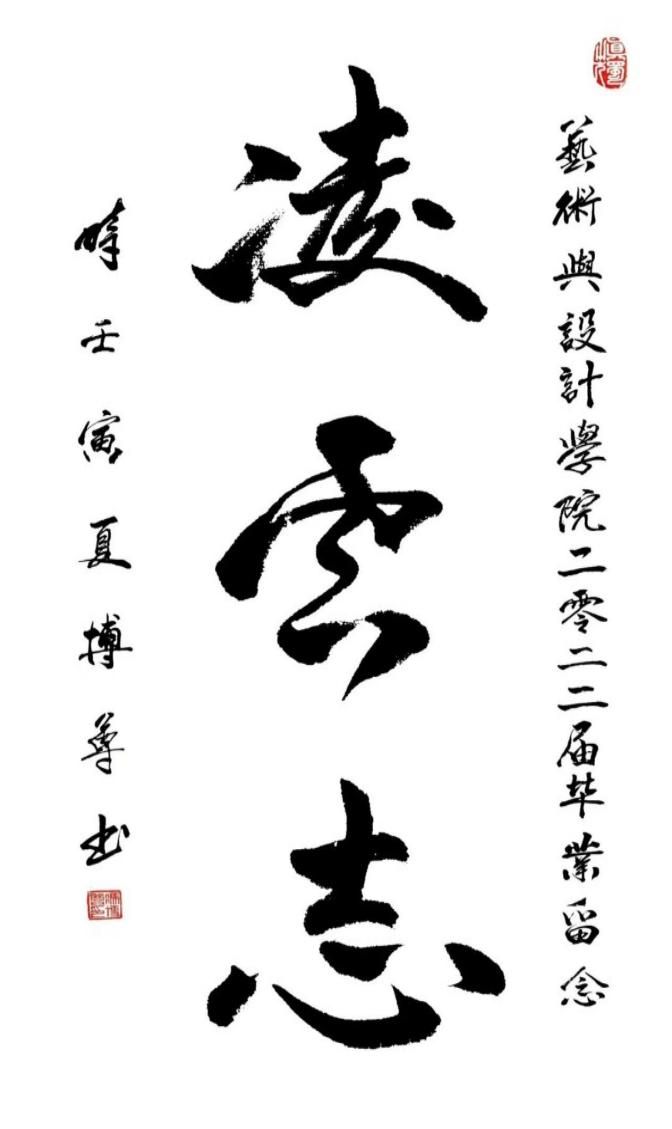 藝術與設計學院二零二二届毕業留念
凌雲志
時壬寅夏搏尊书